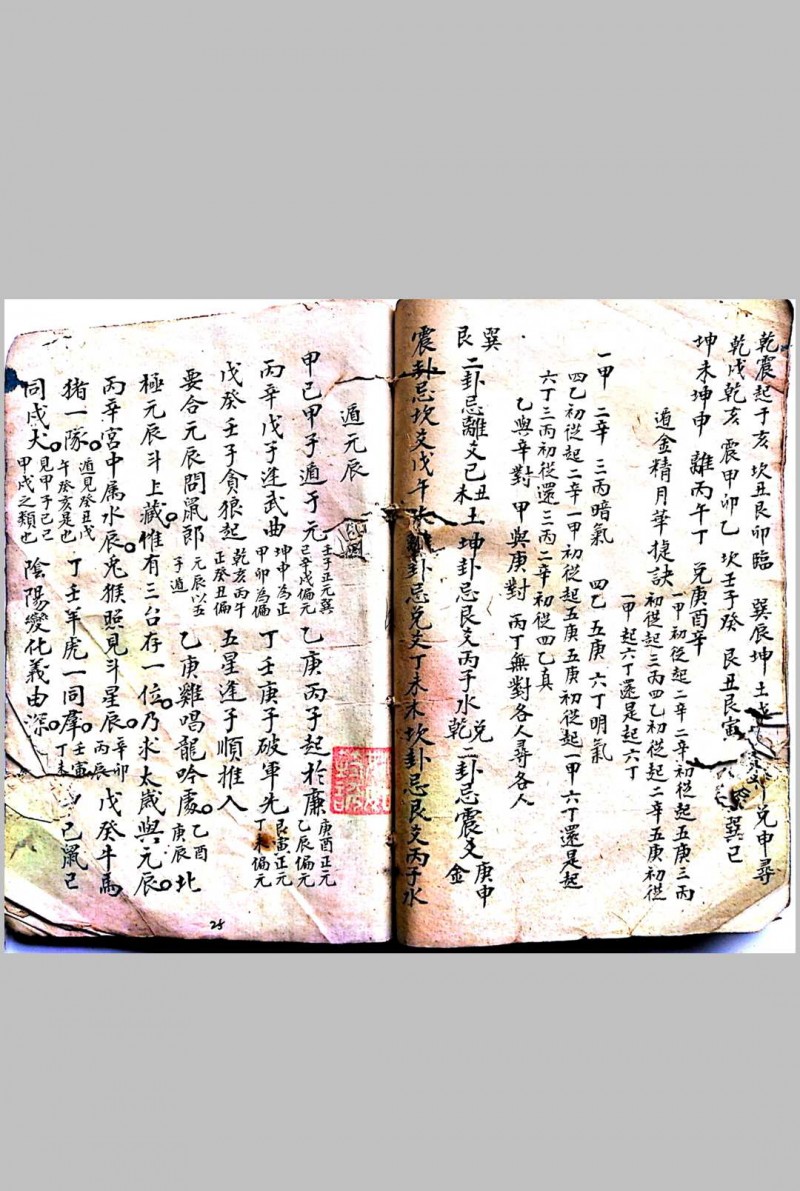 乾震起于亥 坎丑艮卯臨 巽辰坤土 兌申尋
乾戌乾亥 震甲卯乙 坎壬子癸 艮丑艮寅 巽巳
坤未坤申 離丙午丁 兌庚酉辛
遁金精月華捷訣
一甲初從起二辛二辛初從起五庚三丙
初從起三丙四乙初從起二辛五庚初從
一甲起六丁還是起六丁
一甲 二辛 三丙暗氣 四乙五庚 六丁明氣
四乙初從起二辛一甲初從起五庚五庚初從起一甲六丁還是起
六丁三丙初從還三丙二辛初從四乙真
乙與辛對 甲與庚對 丙丁無對各人尋各人
巽艮二卦忌離爻己丑未土 坤卦忌艮爻丙子水 兌乾二卦忌震爻庚申金
震卦忌坎爻戊午 離卦忌兌爻丁未木坎卦忌艮爻丙子水
遁元辰
甲己甲子遁于元 壬子正元巽己辛戌偏元 乙庚丙子起於廉 庚酉正元乙辰偏元
丙辛戊子逢武曲 坤申為正甲卯為偏 丁壬庚子破軍先 艮寅正元丁未偏元
戊癸壬子貪狼起 乾亥丙午正癸丑偏 五星逢子順推入
要合元辰問鼠郎 元辰以五子遁 乙庚雞唱龍吟處 乙酉庚辰 北
極元辰斗上藏 惟有三台存一位 乃求太歲與元辰
丙辛宮中属水辰 兔猴照見斗星辰 辛卯丙辰 戊癸牛馬
猪一隊 遁見癸丑戊午癸亥是也 丁壬年虎一同羣 壬寅丁未 己鼠己
同戌犬 見甲子己巳甲戌之類也 陰陽變化義由深
25